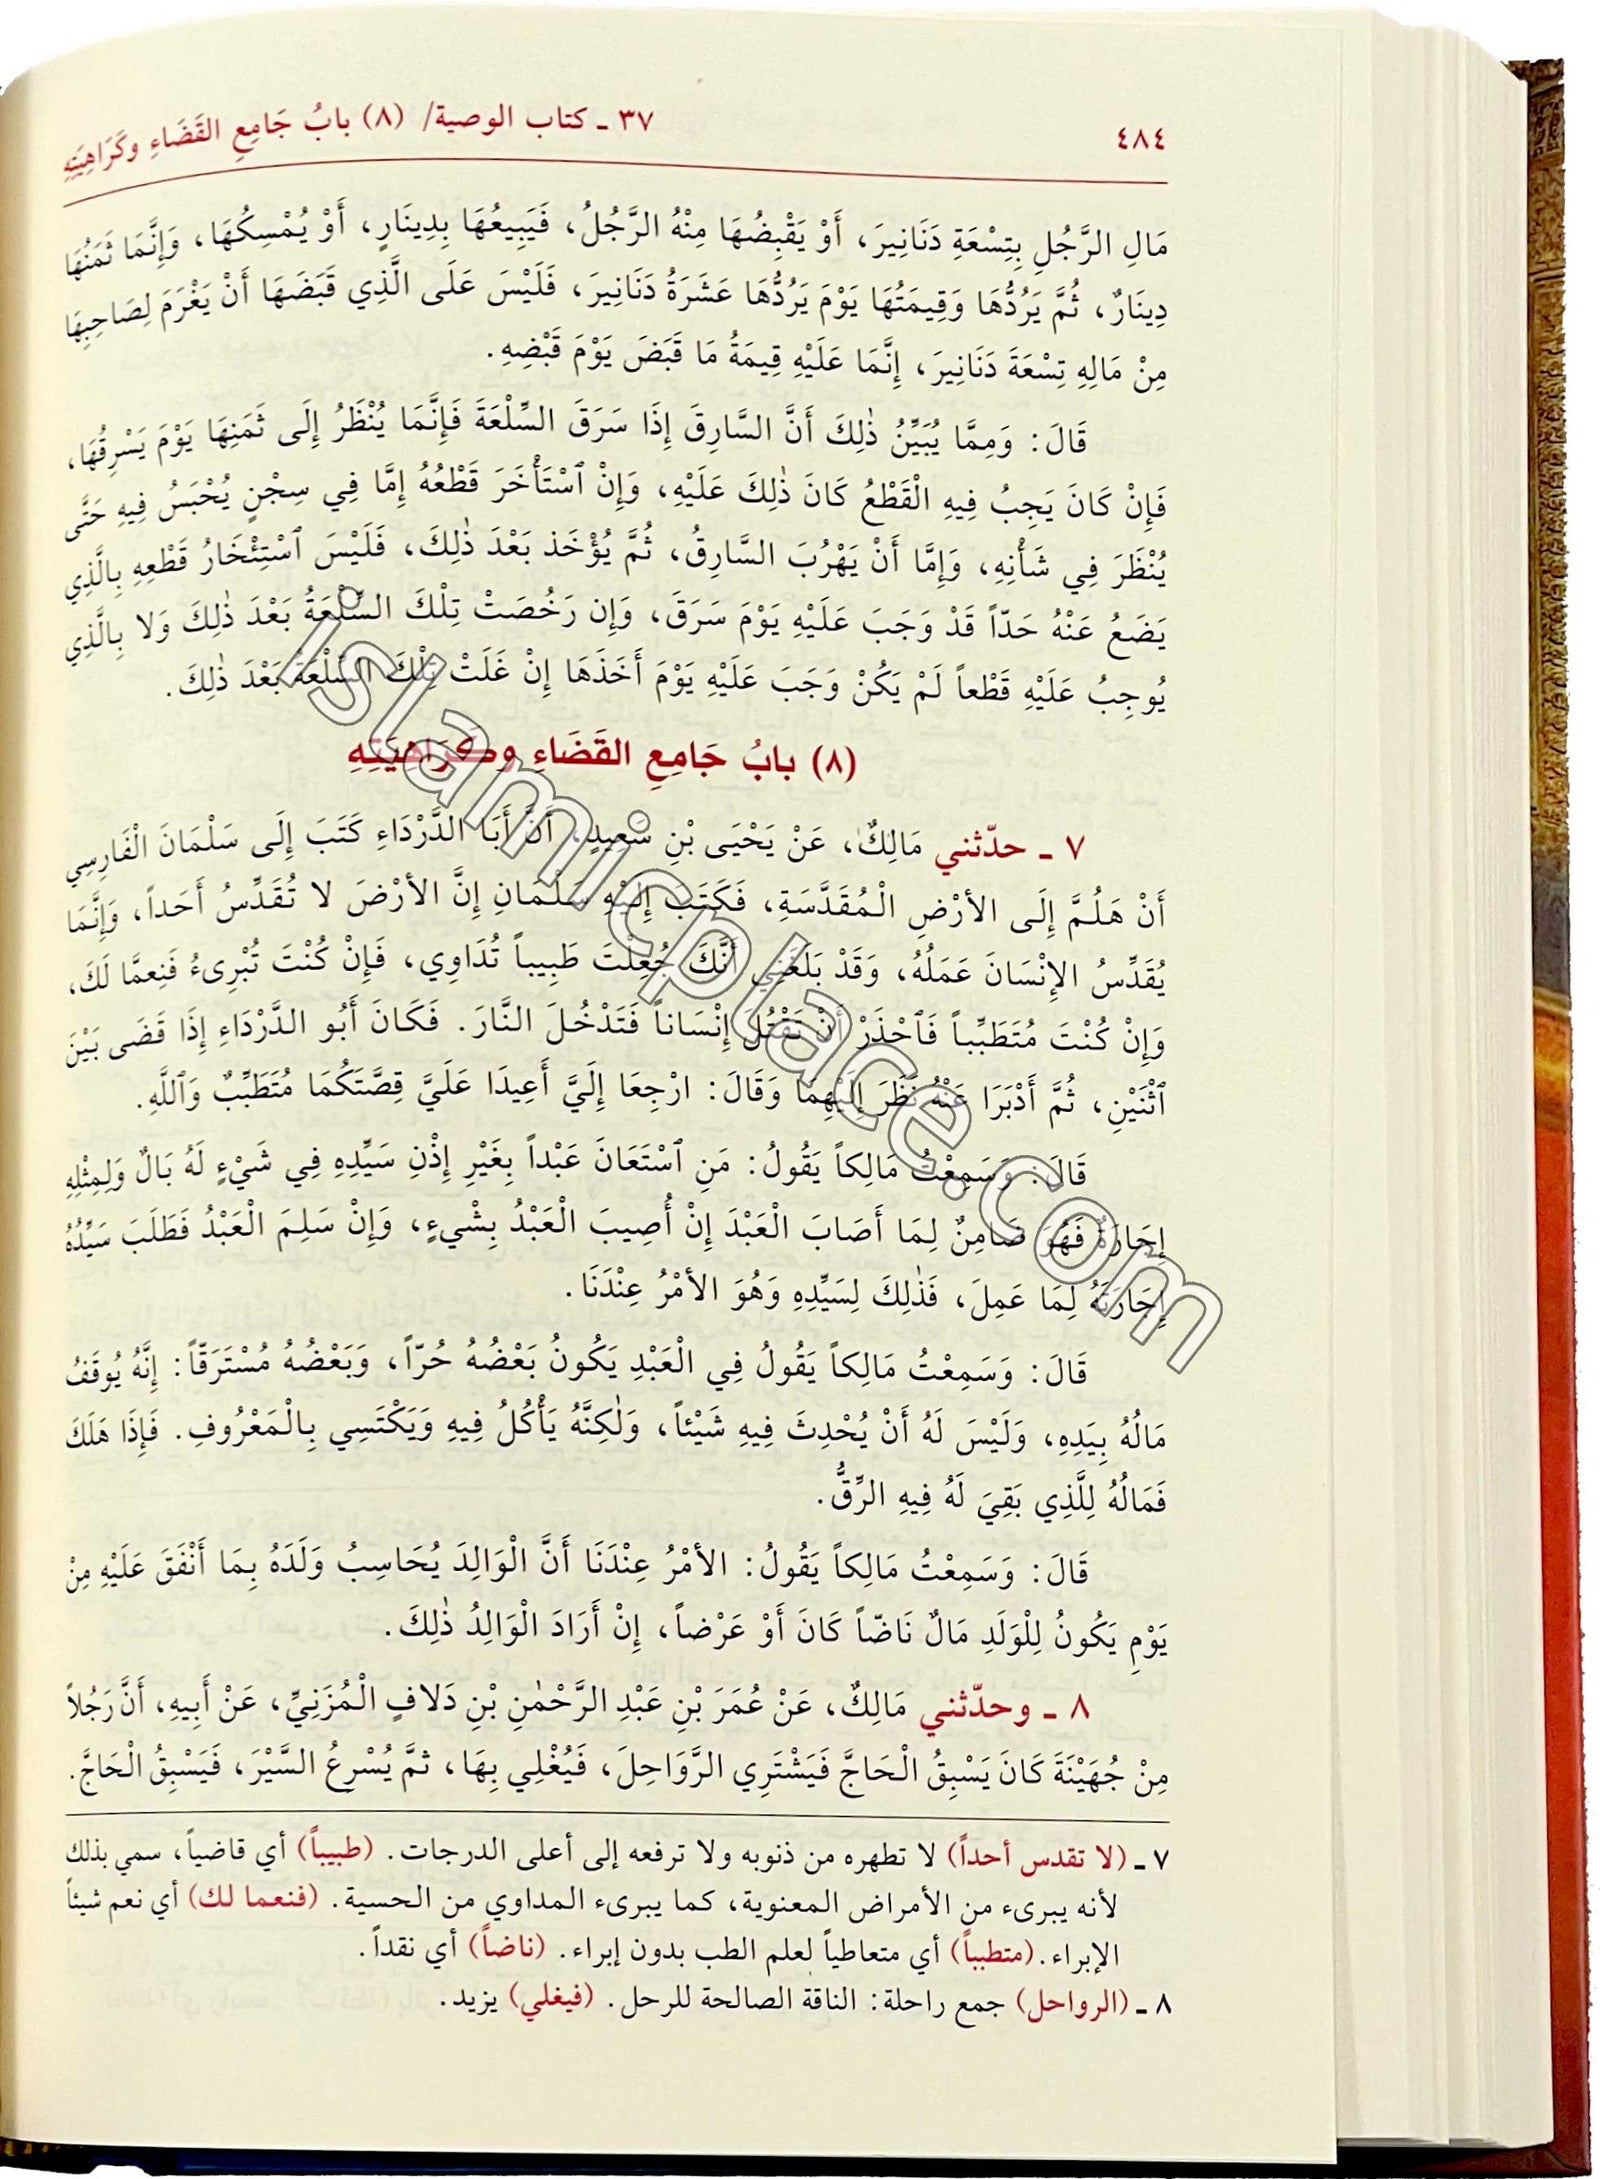 ٤٨٤
٣٧ ـ كتاب الوصية/ (٨) بابُ جَامِعِ القَضَاءِ وكَرَاهِيَتِهِ
مَالِ الرَّجُلِ بِتِسْعَةِ دَنَانِيرَ، أَوْ يَقْبِضُهَا مِنْهُ الرَّجُلُ، فَيَبِيعُهَا بِدِينَارٍ، أَوْ يُمْسِكُهَا، وَإِنَّمَا ثَمَنُهَا
دِينَارٌ، ثُمَّ يَرُدُّهَا وَقِيمَتُهَا يَوْمَ يَرُدُّهَا عَشَرَةُ دَنَانِيرَ، فَلَيْسَ عَلَى الَّذِي قَبَضَهَا أَنْ يَغْرَمَ لِصَاحِبِهَا
مِنْ مَالِهِ تِسْعَةَ دَنَانِيرَ، إِنَّمَا عَلَيْهِ قِيمَةُ مَا قَبَضَ يَوْمَ قَبْضِهِ.
قَالَ: وَمِمَّا يُبَيِّنُ ذٰلِكَ أَنَّ السَّارِقَ إِذَا سَرَقَ السِّلْعَةَ فَإِنَّمَا يُنْظَرُ إِلَى ثَمَنِهَا يَوْمَ يَسْرِقُهَا،
فَإِنْ كَانَ يَجِبُ فِيهِ الْقَطْعُ كَانَ ذٰلِكَ عَلَيْهِ، وَإِنْ ٱسْتَأْخَرَ قَطْعُهُ إِمَّا فِي سِجْنٍ يُحْبَسُ فِيهِ حَتَّى
يُنْظَرَ فِي شَأْنِهِ، وَإِمَّا أَنْ يَهْرُبَ السَّارِقُ، ثُمَّ يُؤْخَذ بَعْدَ ذٰلِكَ، فَلَيْسَ ٱسْتِئْخَارُ قَطْعِهِ بِالَّذِي
يَضَعُ عَنْهُ حَدّاً قَدْ وَجَبَ عَلَيْهِ يَوْمَ سَرَقَ، وَإِن رَخُصَتْ تِلْكَ السِّلْعَةُ بَعْدَ ذٰلِكَ وَلا بِالَّذِي
يُوجِبُ عَلَيْهِ قَطْعاً لَمْ يَكُنْ وَجَبَ عَلَيْهِ يَوْمَ أَخَذَهَا إِنْ غَلَتْ تِلْكَ السِّلْعَةُ بَعْدَ ذٰلِكَ.
(٨) بابُ جَامِعِ القَضَاءِ وكَرَاهِيَتِهِ
٧ ـ حدّثني مَالِكٌ، عَنْ يَحْيَى بْنِ سَعِيدٍ، أَنَّ أَبَا الدَّرْدَاءِ كَتَبَ إِلَى سَلْمَانَ الْفَارِسِي
أَنْ هَلُمَّ إِلَى الأرْضِ الْمُقَدَّسَةِ، فَكَتَبَ إِلَيْهِ سَلْمَانِ إِنَّ الأرْضَ لا تُقَدِّسُ أَحَداً، وَإِنَّمَا
يُقَدِّسُ الإِنْسَانَ عَمَلُهُ، وَقَدْ بَلَغَنِي أَنَّكَ جُعِلْتَ طَبِيباً تُدَاوِي، فَإِنْ كُنْتَ تُبْرِىءُ فَنِعمَّا لَكَ،
وَإِنْ كُنْتَ مُتَطَبِّباً فَٱحْذَرْ أَنْ تَقْتُلَ إِنْسَاناً فَتَدْخُلَ النَّارَ. فَكَانَ أَبُو الدَّرْدَاءِ إِذَا قَضَى بَيْنَ
ٱثْنَيْنِ، ثُمَّ أَدْبَرَا عَنْهُ نَظَرَ إِلَيْهِمَا وَقَالَ: ارْجِعَا إِلَيَّ أَعِيدَا عَلَيَّ قِصَّتَكُمَا مُتَطَبِّبٌ وَٱللَّهِ.
قَالَ: وَسَمِعْتُ مَالِكاً يَقُولُ: مَنِ ٱسْتَعَانَ عَبْداً بِغَيْرِ إِذْنِ سَيِّدِهِ فِي شَيْءٍ لَهُ بَالٌ وَلِمِثْلِهِ
إِجَارَةٌ فَهُوَ ضَامِنٌ لِمَا أَصَابَ الْعَبْدَ إِنْ أُصِيبَ الْعَبْدُ بِشْيءٍ، وَإِنْ سَلِمَ الْعَبْدُ فَطَلَبَ سَيِّدُهُ
إِجَارَتَهُ لِمَا عَمِلَ، فَذٰلِكَ لِسَيِّدِهِ وَهُوَ الأمْرُ عِنْدَنَا.
قَالَ: وَسَمِعْتُ مَالِكاً يَقُولُ فِي الْعَبْدِ يَكُونُ بَعْضُهُ حُرّاً، وَبَعْضُهُ مُسْتَرَقّاً: إِنَّهُ يُوقَفُ
مَالُهُ بِيَدِهِ، وَلَيْسَ لَهُ أَنْ يُحْدِثَ فِيهِ شَيْئاً، وَلٰكِنَّهُ يَأْكُلُ فِيهِ وَيَكْتَسِي بِالْمَعْرُوفِ. فَإِذَا هَلَكَ
فَمَالُهُ لِلَّذِي بَقِيَ لَهُ فِيهِ الرِّقُّ.
قَالَ: وَسَمِعْتُ مَالِكاً يَقُولُ: الأمْرُ عِنْدَنَا أَنَّ الْوَالِدَ يُحَاسِبُ وَلَدَهُ بِمَا أَنْفَقَ عَلَيْهِ مِنْ
يَوْمِ يَكُونُ لِلْوَلَدِ مَالٌ نَاضّاً كَانَ أَوْ عَرْضاً، إِنْ أَرَادَ الْوَالِدُ ذٰلِكَ.
٨ ـ وحدّثني مَالِكٌ، عَنْ عُمَرَ بْنِ عَبْدِ الرَّحْمٰنِ بْنِ دَلافٍ الْمُزَنِيِّ، عَنْ أَبِيهِ، أَنَّ رَجُلاً
مِنْ جُهَيْنَةَ كَانَ يَسْبِقُ الْحَاجَّ فَيَشْتَرِي الرَّوَاحِلَ، فَيُغْلِي بِهَا، ثمَّ يُسْرِعُ السَّيْرَ، فَيَسْبِقُ الْحَاجَّ.
٧ ـ (لا تقدس أحداً) لا تطهره من ذنوبه ولا ترفعه إلى أعلى الدرجات. (طبيباً) أي قاضياً، سمي بذلك
لأنه يبرىء من الأمراض المعنوية، كما يبرىء المداوي من الحسية. (فنعما لك) أي نعم شيئاً
الإبراء. (متطبباً) أي متعاطياً لعلم الطب بدون إبراء. (ناضاً) أي نقداً.
٨ ـ (الرواحل) جمع راحلة: الناقة الصالحة للرحل. (فيغلي) يزيد.
Islamicplace.com